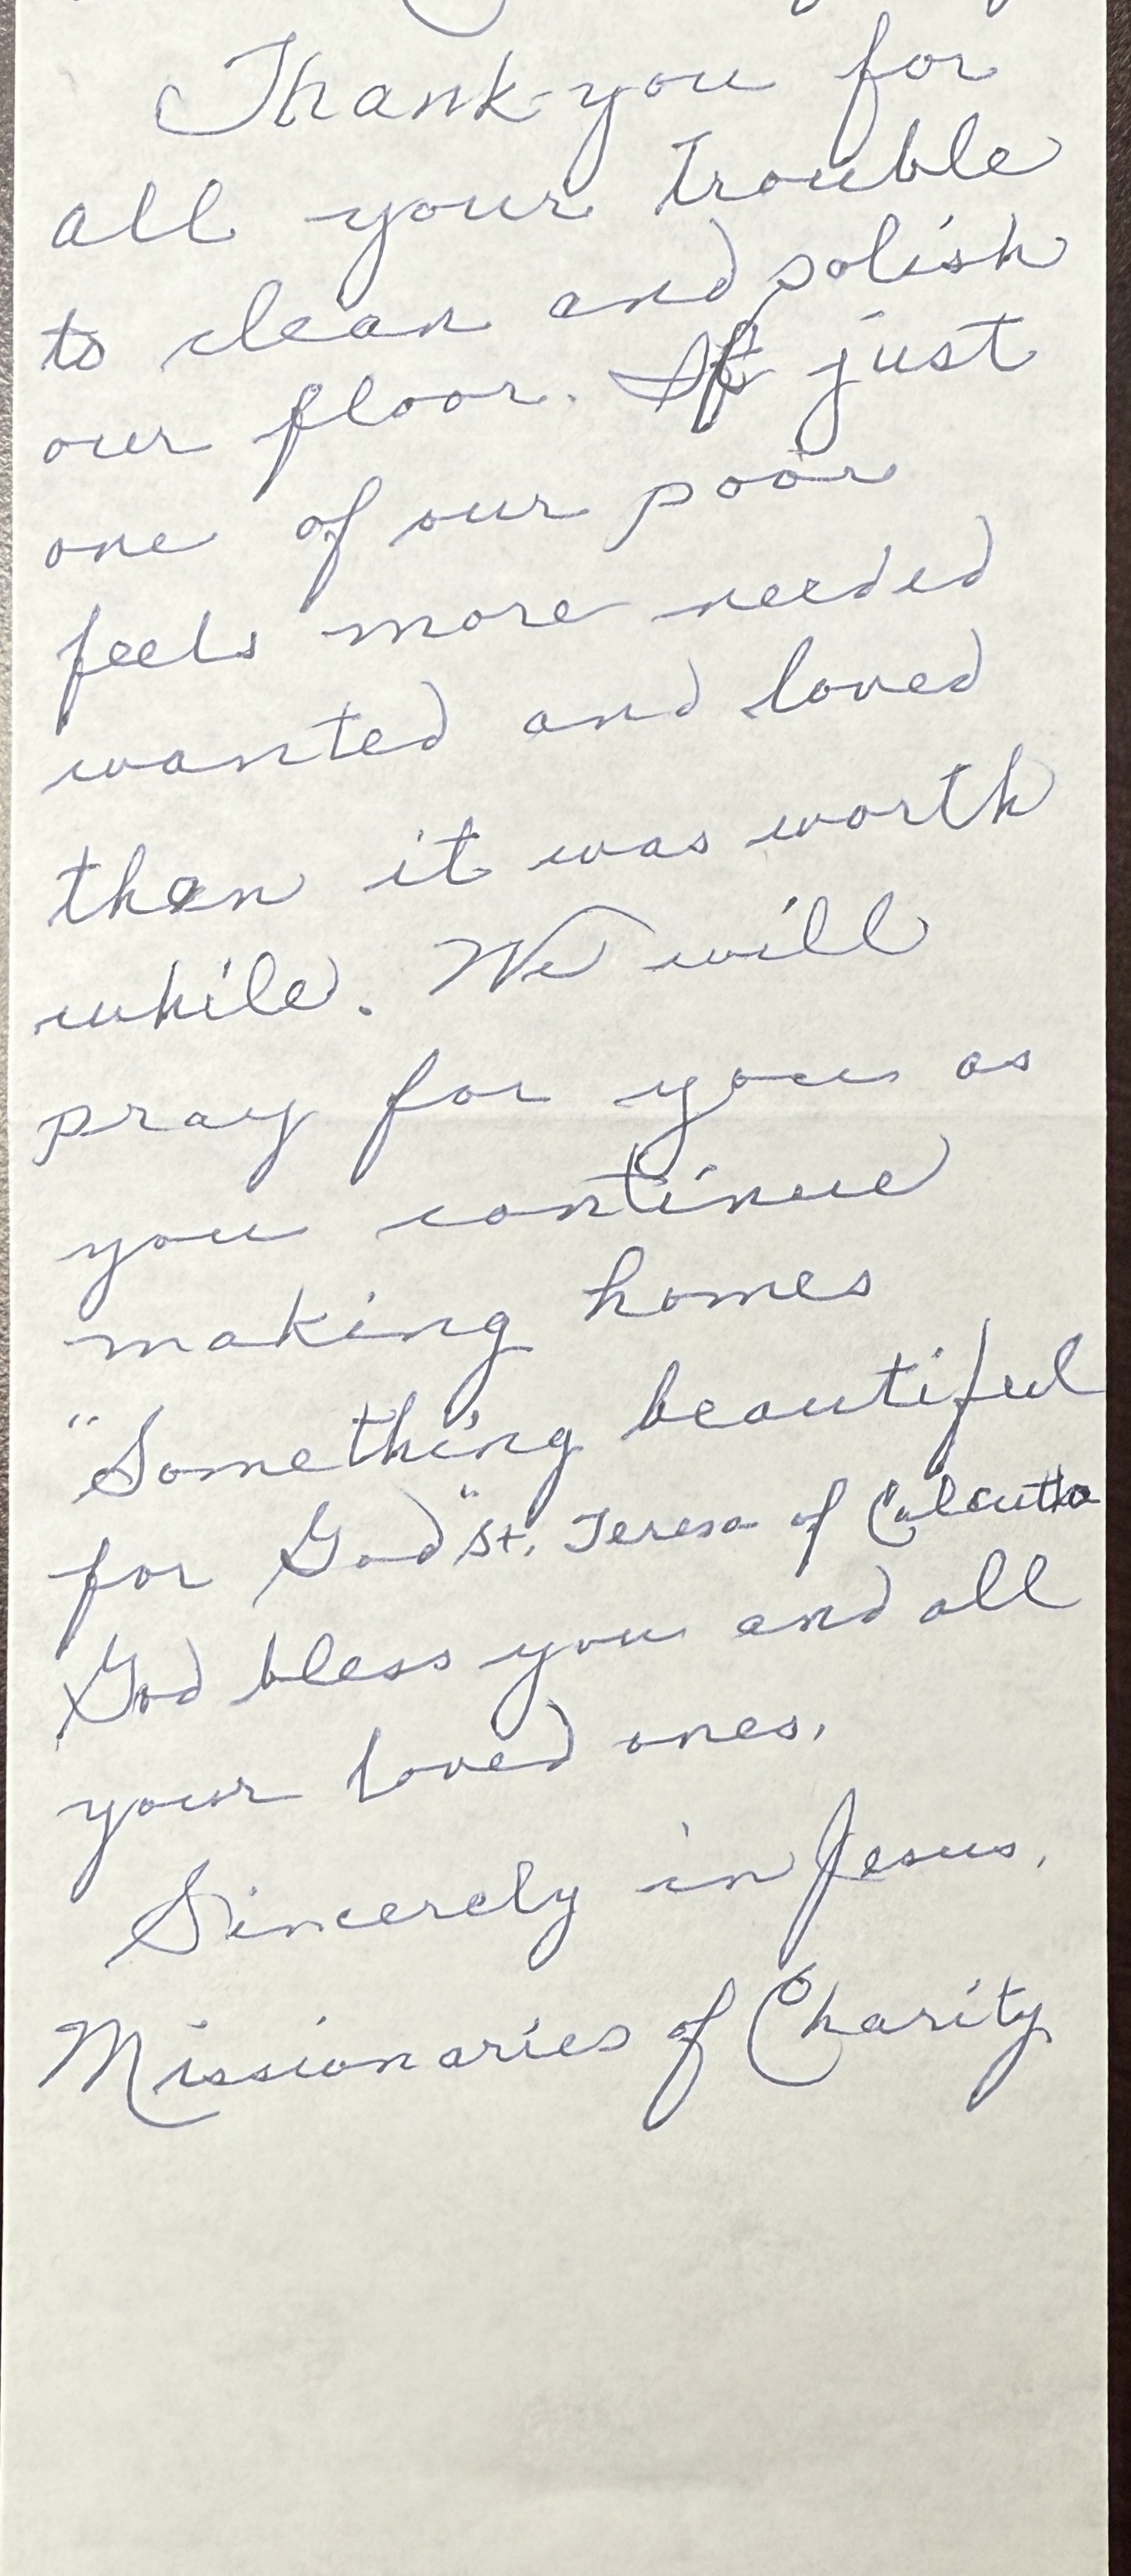 Thank you for
all your trouble
to clean and polish
our floor. If just
one of our poor
feels more needed
wanted and loved
then it was worth
while. We will
pray for you as
you continue
making homes
"Something beautiful
for God" St. Teresa of Calcutta
God bless you and all
your loved ones.
Sincerely in Jesus,
Missionaries of Charity